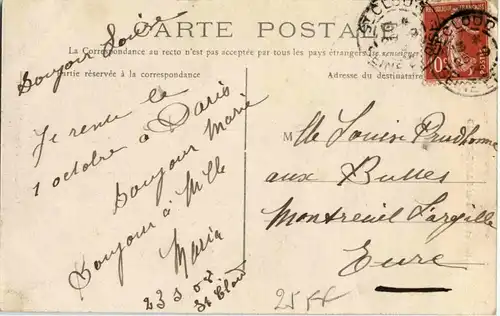 CARTE POSTALE
La Correspondance au recto n'est pas acceptée par tous les pays étrangers. Se renseigner
Partie réservée à la correspondance
Adresse du destinataire
Bonjour
Je rentre le
1 octobre à Paris
Bonjour Marie
Bonjour à Mlle
Maria
23 9 07
St Cloud
Mlle Louise Prudhomme
aux Buttes
Montreuil L'argillé
Eure
25 FF
ST CLOUD